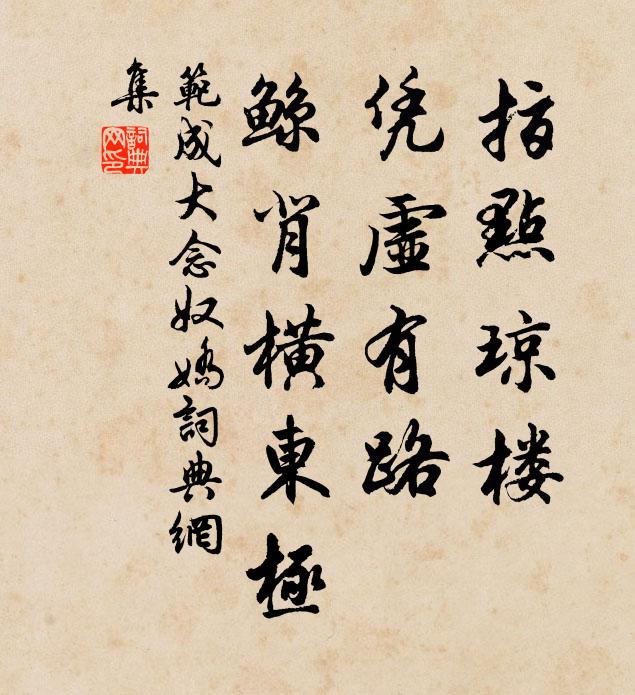 指點琼楼
凭虚有路
鯨背横東極
範成大念奴嬌詞典網
集
詞典网印